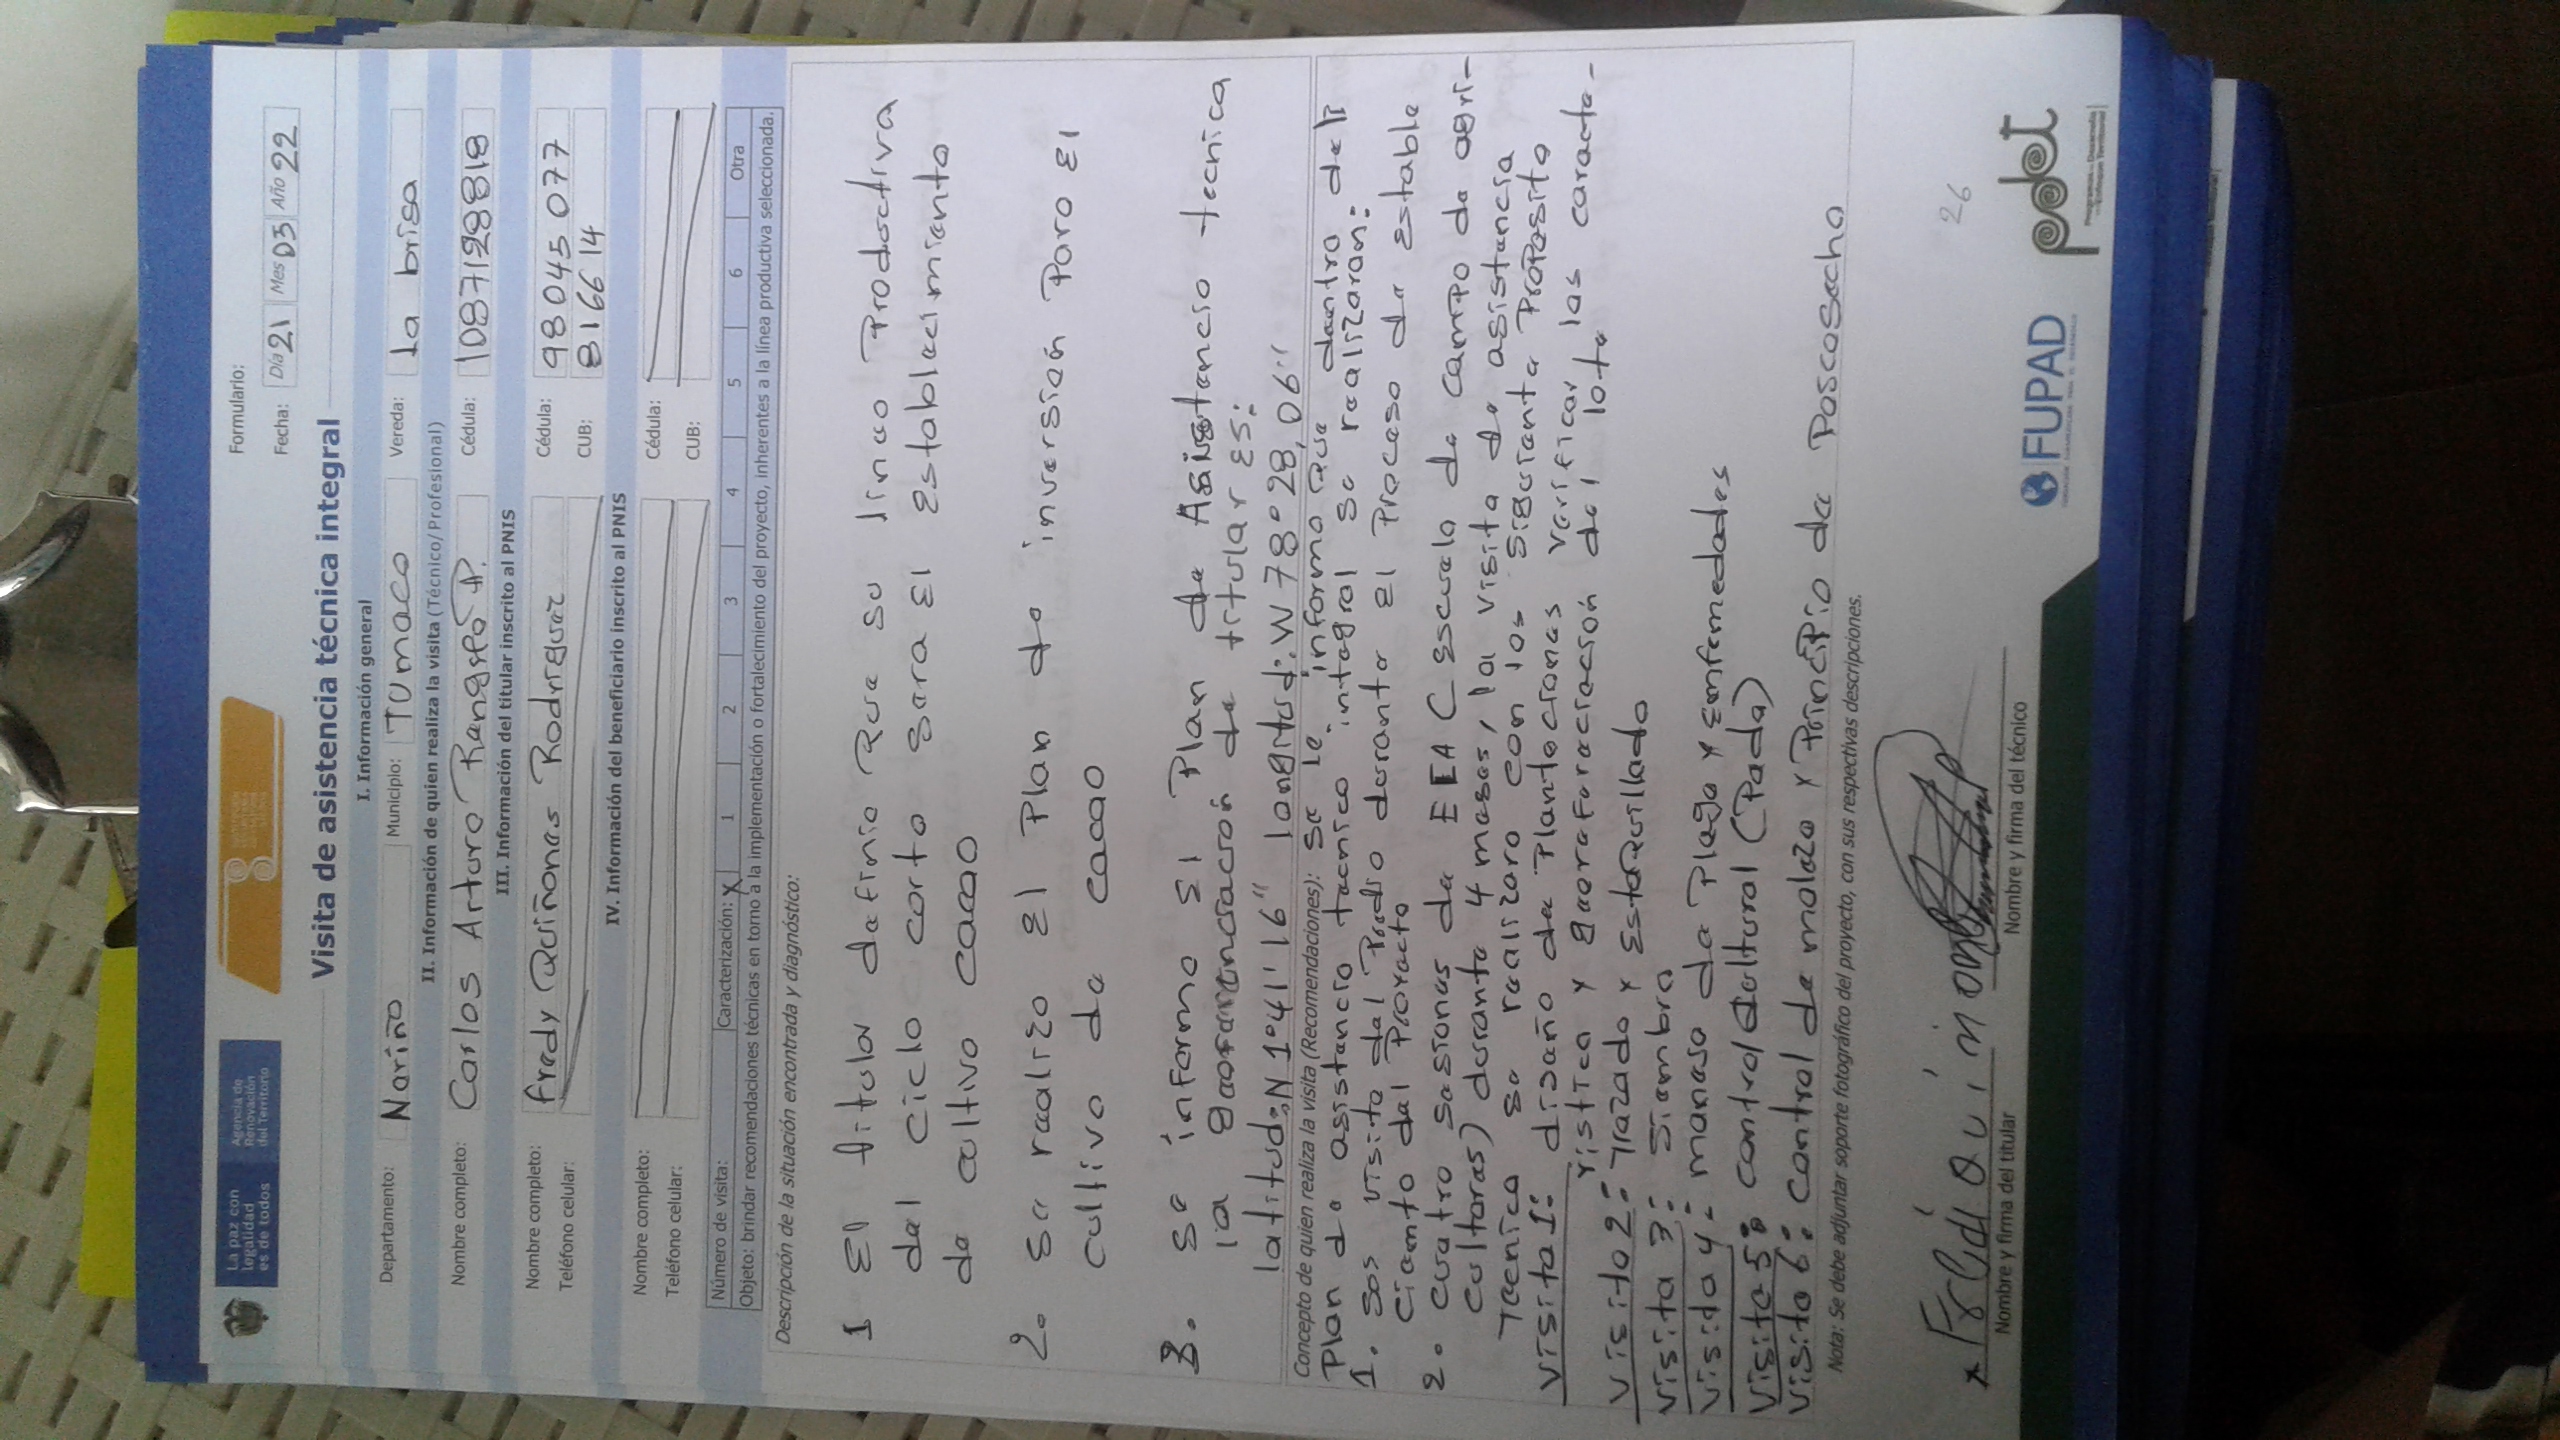 La paz con
legalidad
es de todos
Agencia de
Renovación
del Territorio
Formulario:
Fecha: Día 21 Mes 03 Año 22
Visita de asistencia técnica integral
I. Información general
Departamento: Nariño Municipio: TUmaco Vereda: la brisa
II. Información de quien realiza la visita (Técnico/Profesional)
Nombre completo: Carlos Arturo Rengifo P. Cédula: 1087128818
III. Información del titular inscrito al PNIS
Nombre completo: fredy Quiñones Rodriguez Cédula: 98045077
Teléfono celular: CUB: 816614
IV. Información del beneficiario inscrito al PNIS
Nombre completo: Cédula:
Teléfono celular: CUB:
Número de visita: Caracterización: X 1 2 3 4 5 6 Otra
Objeto: brindar recomendaciones técnicas en torno a la implementación o fortalecimiento del proyecto, inherentes a la línea productiva seleccionada.
Descripción de la situación encontrada y diagnóstico:
1 El titular definio que su linea Productiva
del ciclo corto sera El establecimiento
de cultivo cacao
2. se realizo El Plan de inversión Para El
cultivo de cacao
3. se informo El Plan de Asistencia tecnica
la georenciación de titular es:
latitud: N 1°41'16" longitud: W 78°28,06"
Concepto de quien realiza la visita (Recomendaciones): se le informo que dentro del
Plan de asistencia tecnico integral se realizaran:
1. sos visita del Predio durante El Proceso de Estable
ciamto del Proyecto
2. cuatro sesiones de EIAC Escuela de campo de agri-
cultores) durante 4 meses, la visita de asistancia
Tecnica se realizara con los siguiente Proposito
Visita 1: diseño de Plantaciones verificar las caracte-
ristica y georeferaciación del lote
Visita 2: Trazado y Estaquillado
Visita 3: siembra
Visida 4: manejo da Plaga y Emfemedades
Visita 5: control cultural (Poda)
Visita 6: control de maleza y Principio de Poscosecha
Nota: Se debe adjuntar soporte fotográfico del proyecto, con sus respectivas descripciones.
Nombre y firma del titular
Nombre y firma del técnico
26
FUPAD
pdet